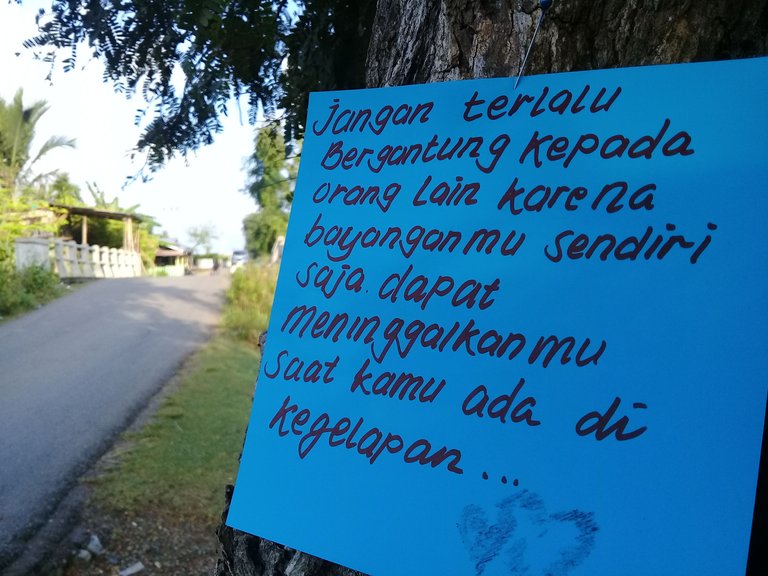 jangan terlalu
Bergantung kepada
orang lain karena
bayanganmu sendiri
saja. dapat
meninggalkanmu
saat kamu ada di
kegelapan...